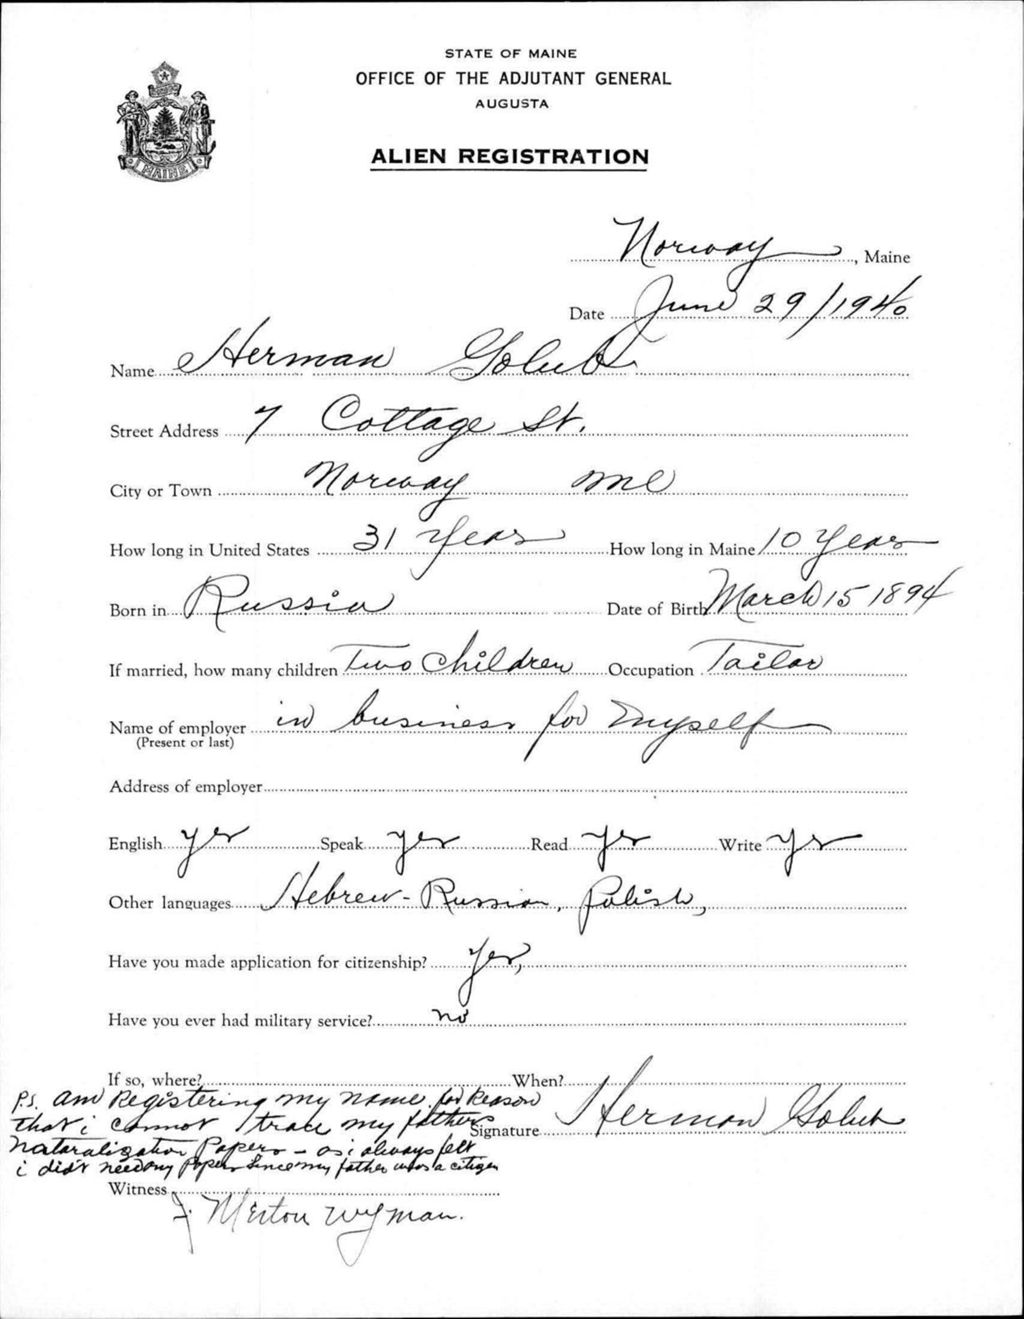 STATE OF MAINE
OFFICE OF THE ADJUTANT GENERAL
AUGUSTA
ALIEN REGISTRATION
MAINE
Norway, Maine
Date June 29/1940
Name Herman Golub
Street Address 7 Cottage St.
City or Town Norway Me
How long in United States 31 Years How long in Maine 10 Years
Born in Russia Date of Birth March 15 1894
If married, how many children Two Children Occupation Tailor
Name of employer in business for myself
(Present or last)
Address of employer
English yes Speak yes Read yes Write yes
Other languages Hebrew - Russian, Polish,
Have you made application for citizenship? Yes,
Have you ever had military service? no
If so, where? When?
P.S. am Registering my name for Reason
that i cannot trace my fathers
Naturalization Papers - as i always felt
i did't need any papers since my father was a citizen
Signature Herman Golub
Witness
J. Merton Wyman.